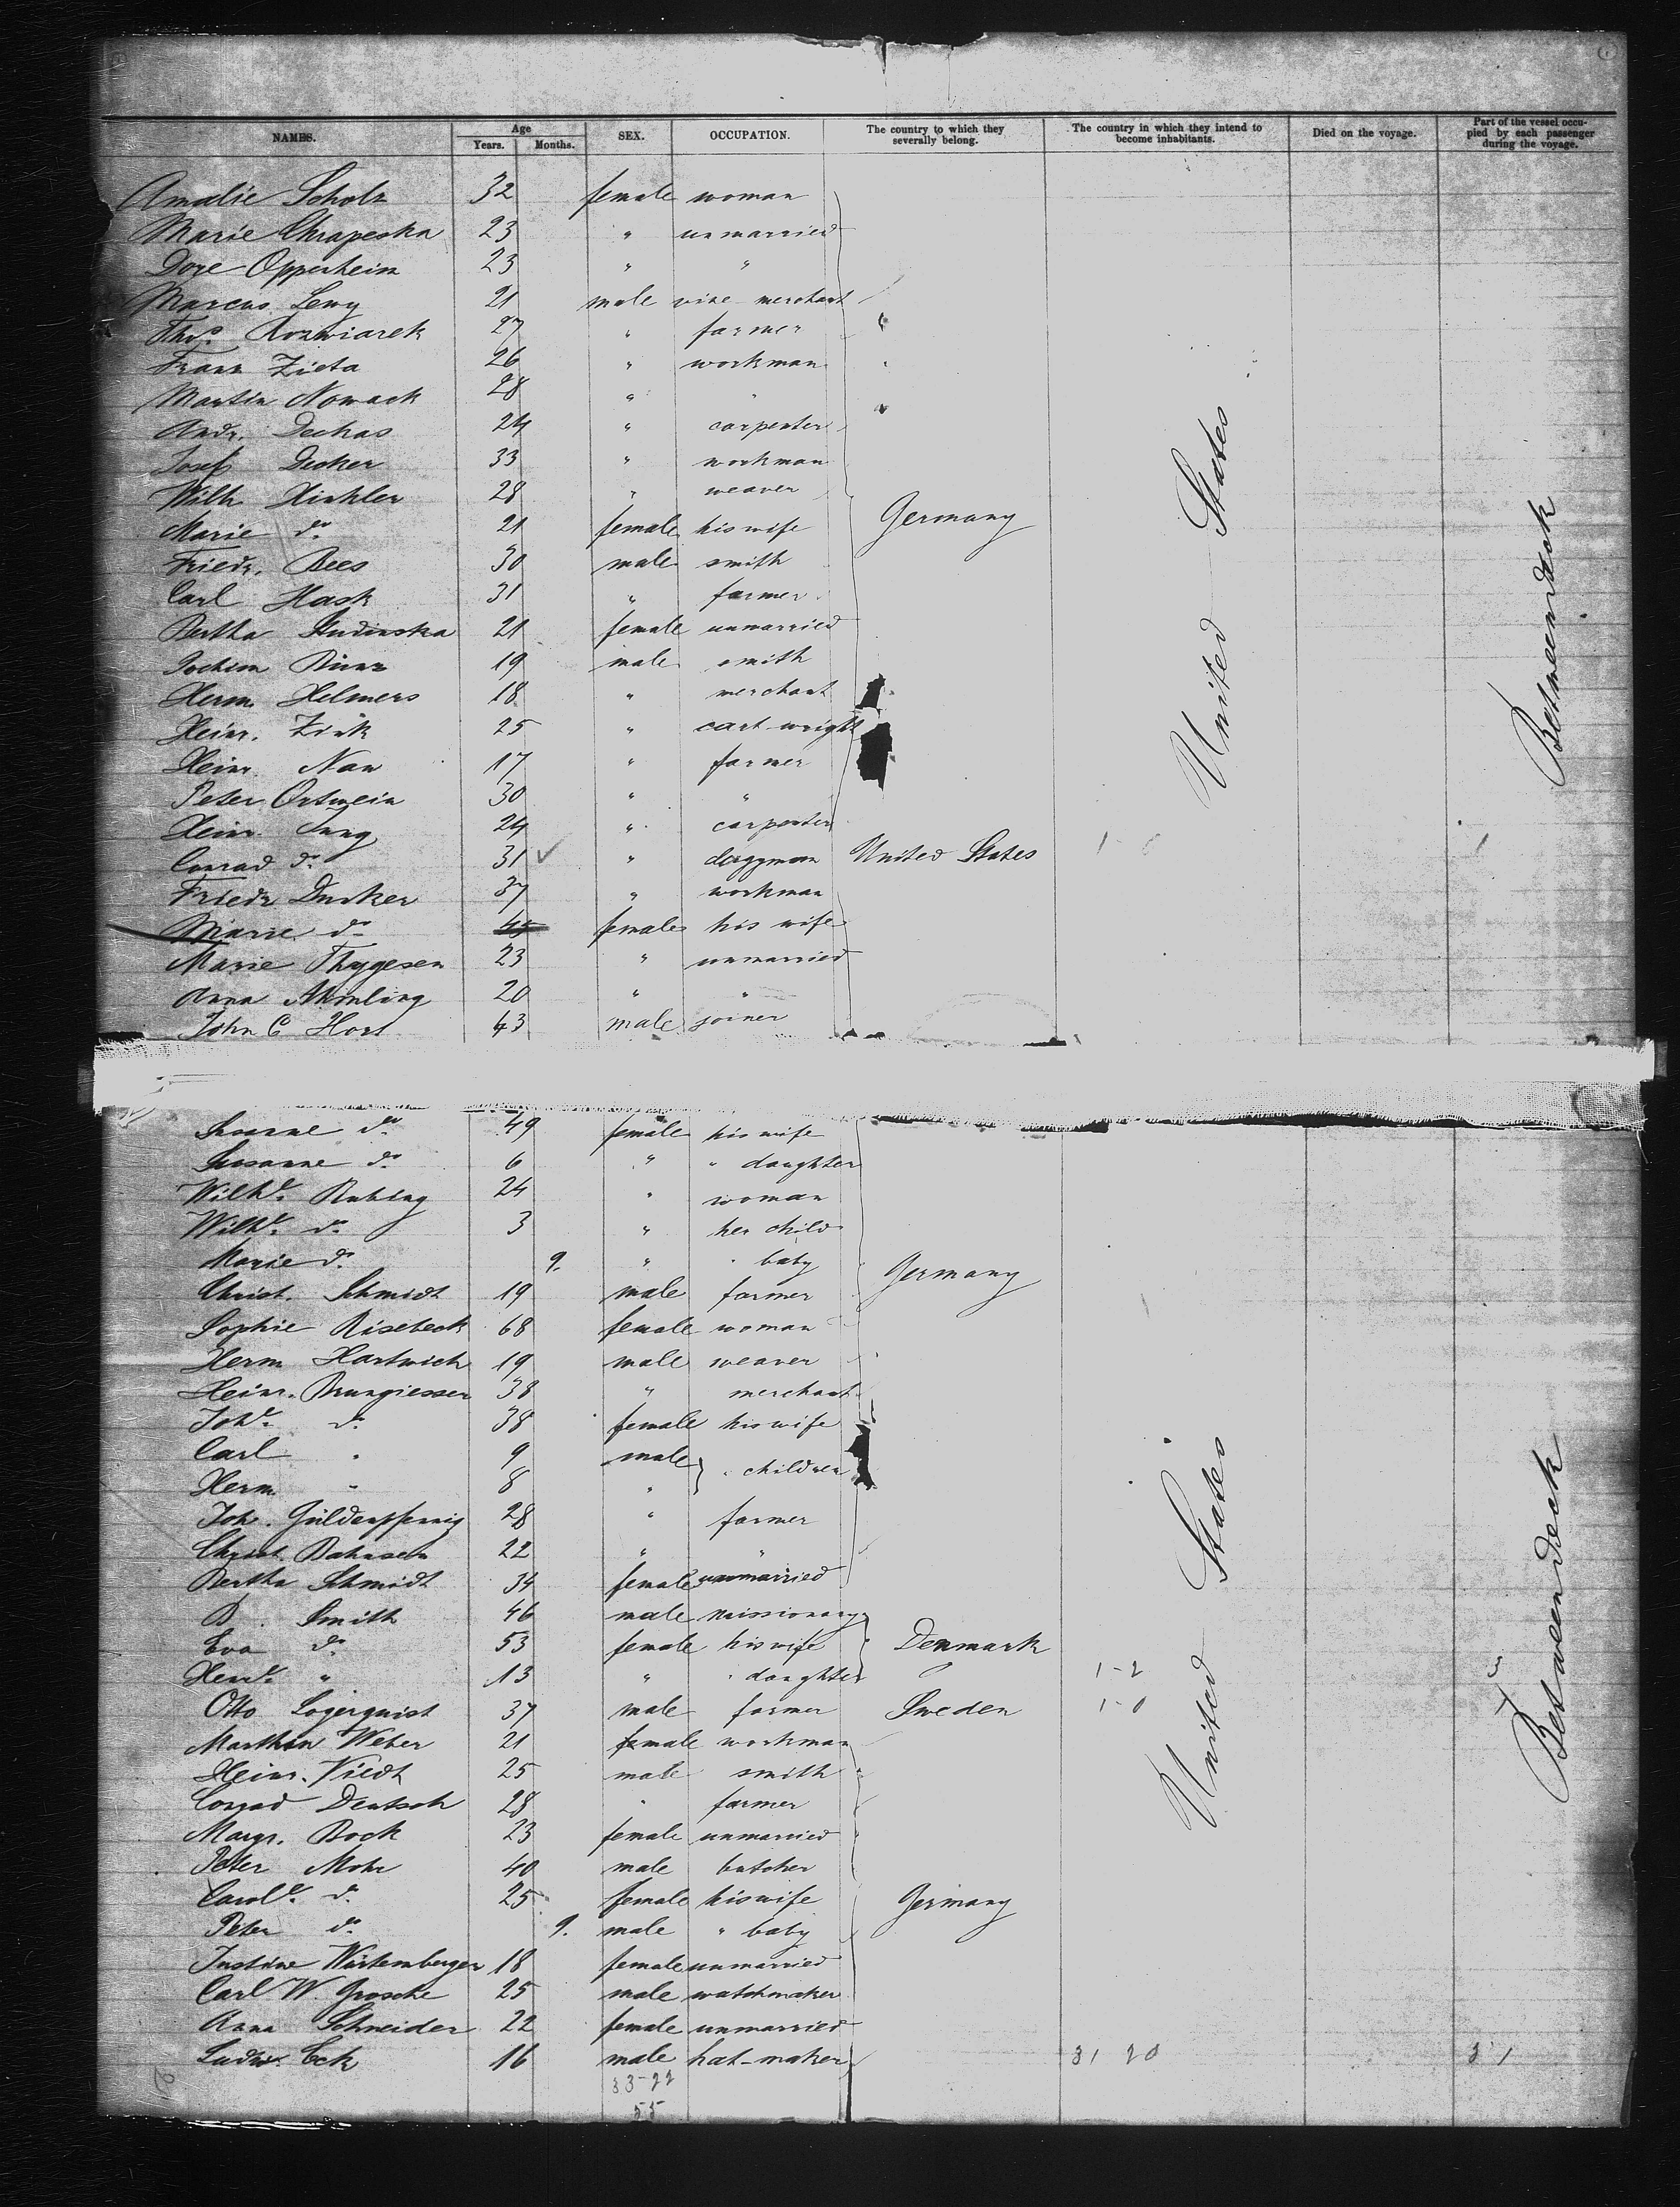 NAMES. Age Years. Months. SEX. OCCUPATION. The country to which they severally belong. The country in which they intend to become inhabitants. Died on the voyage. Part of the vessel occupied by each passenger during the voyage.
Amalie Scholz 32 female woman
Marie Chrapeska 23 " unmarried
Dore Oppenheim 23 " "
Marcus Lewy 21 male vine-merchant
Tho⁵. Rozwiarek 27 " farmer
Franz Zieta 26 " workman
Martin Nowack 28 "
Andr. Dechas 24 " carpenter
Josef Decker 33 " workman
Wilh Hinkler 28 " weaver
Marie do 21 female his wife Germany
Friedr. Bees 30 male smith
Carl Hask 31 " farmer
Bertha Studinska 21 female unmarried
Jochim Binz 19 male smith
Herm. Helmers 18 " merchant
Heinr. Zink 25 " cart-wright
Heinr. Nau 17 " farmer
Peter Ortwein 30 " "
Heinr. Jung 24 " carpenter
Conrad do 31 " clergyman United States
Friedr Ducker 37 " workman
Marie do 45 female his wife
Marie Thygesen 23 " unmarried
Anna 20 " "
John C Horst 43 male joiner
United States
Betweendeck
do 49 female his wife
Susanne do 6 " " daughter
Wilhe. Rubing 24 " woman
Wilhe. do 3 " her child
Marie do 9. " " baby
Christ. Schmidt 19 male farmer Germany
Sophie Risebeck 68 female woman
Herm Hartwich 19 male weaver
Heinr. Brungiesser 38 " merchant
Johe. do 38 female his wife
Carl " 9 male " children
Herm. " 8 "
Joh. Güldenpfennig 28 " farmer
Christ. Bahnsen 22 " "
Bertha Schmidt 34 female unmarried
B. Smith 46 male missionary
Eva do 53 female his wife Denmark
Henre. " 13 " " daughter 1-2
Otto Lagerquist 37 male farmer Sweden 1-0
Marthin Weber 21 male workman
Heinr. Viedt 25 male smith
Conrad Deutsch 28 " farmer
Margr. Bock 23 female unmarried
Peter Mohr 40 male butcher
Carole. do 25 female his wife Germany
Peter do 9. male " baby
Justine Würtemberger 18 female unmarried
Carl W. Grosche 25 male watchmaker
Anna Schneider 22 female unmarried
Ludw. Eck 16 male hat-maker 31 20 31
33-22
55
United States
Betweendeck